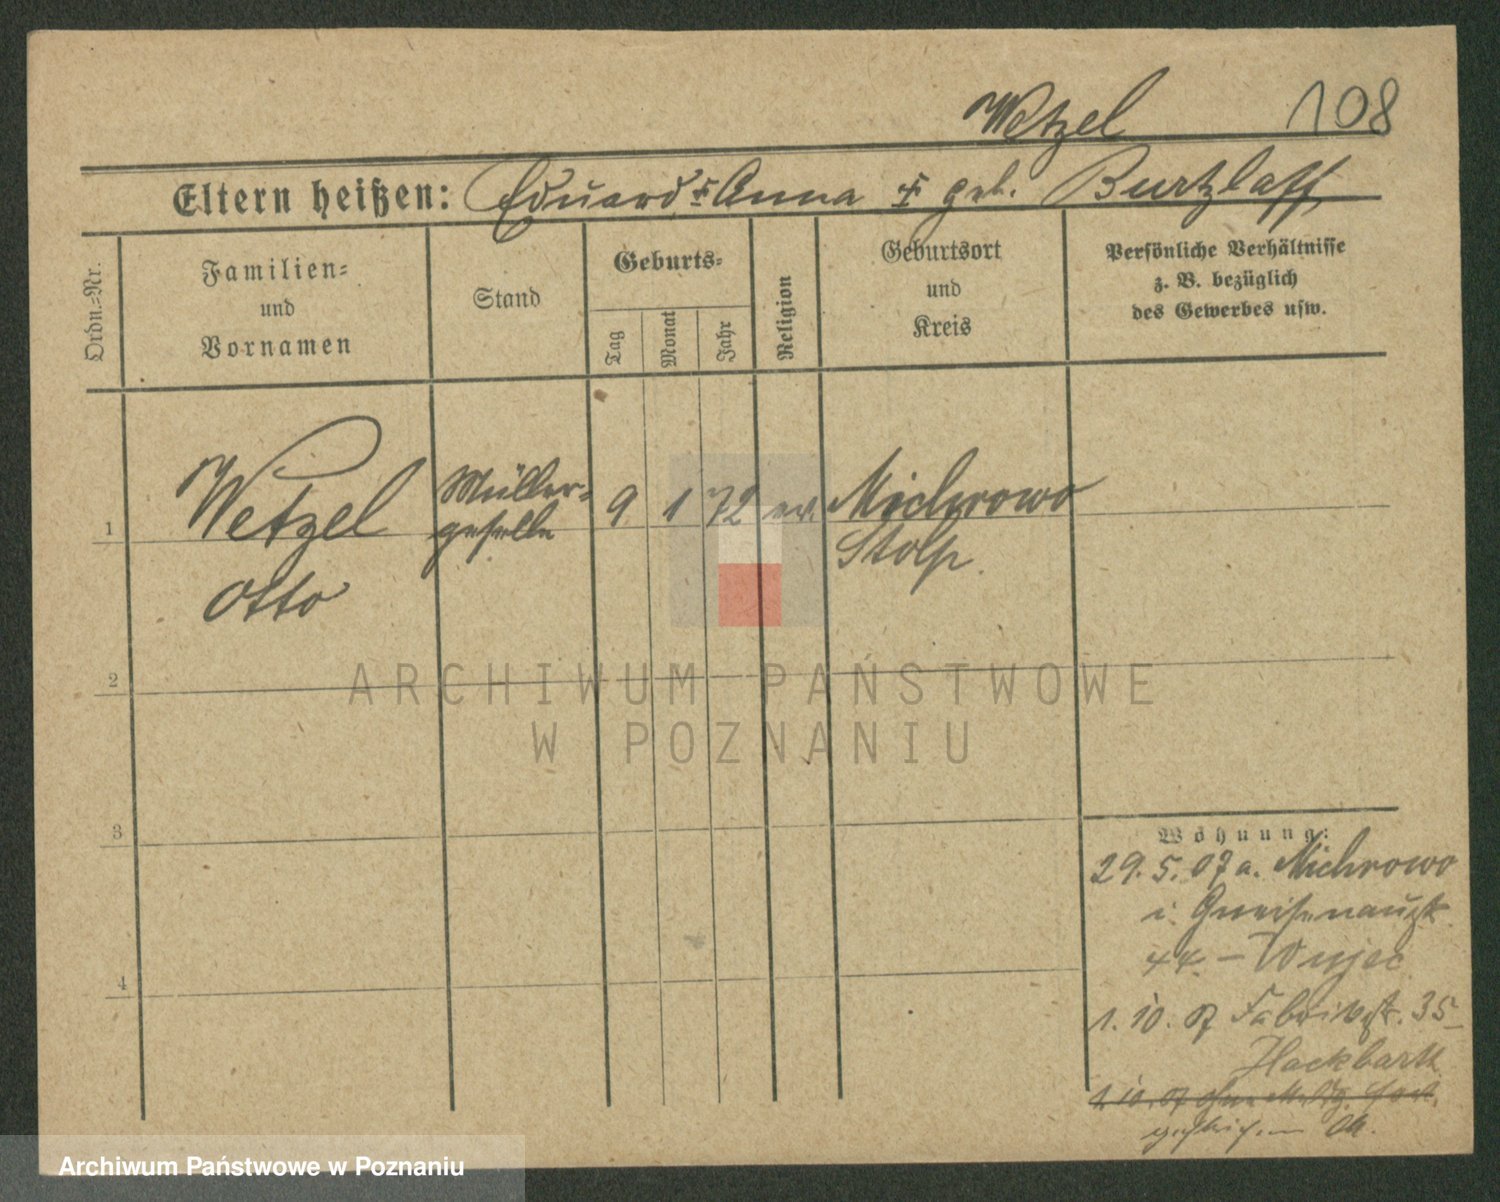 Wetzel 108
Eltern heißen: Eduard ✝ Anna ✝ geb. Burtzlaff
Ordn.-Nr.
Familien-
und
Vornamen
Stand
Geburts-
Tag
Monat
Jahr
Religion
Geburtsort
und
Kreis
Persönliche Verhältnisse
z. B. bezüglich
des Gewerbes usw.
1
Wetzel
Otto
Müller-
geselle
9 1 72 ev. Michrowo
Stolp
2
ARCHIWUM PAŃSTWOWE
W POZNANIU
3
4
Wohnung:
29.5.07 a. Michrowo
i. Gneisenaustr.
44 – Wujec
1.10.07 Fabrikstr. 35
Hackbarth
1.10.07 ohne Meldg. fort
gestrichen
Archiwum Państwowe w Poznaniu